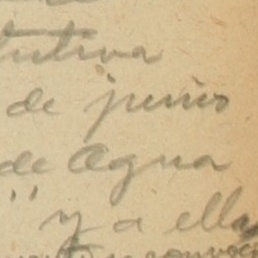 tutiva
de junio
de Agua
" y a ella